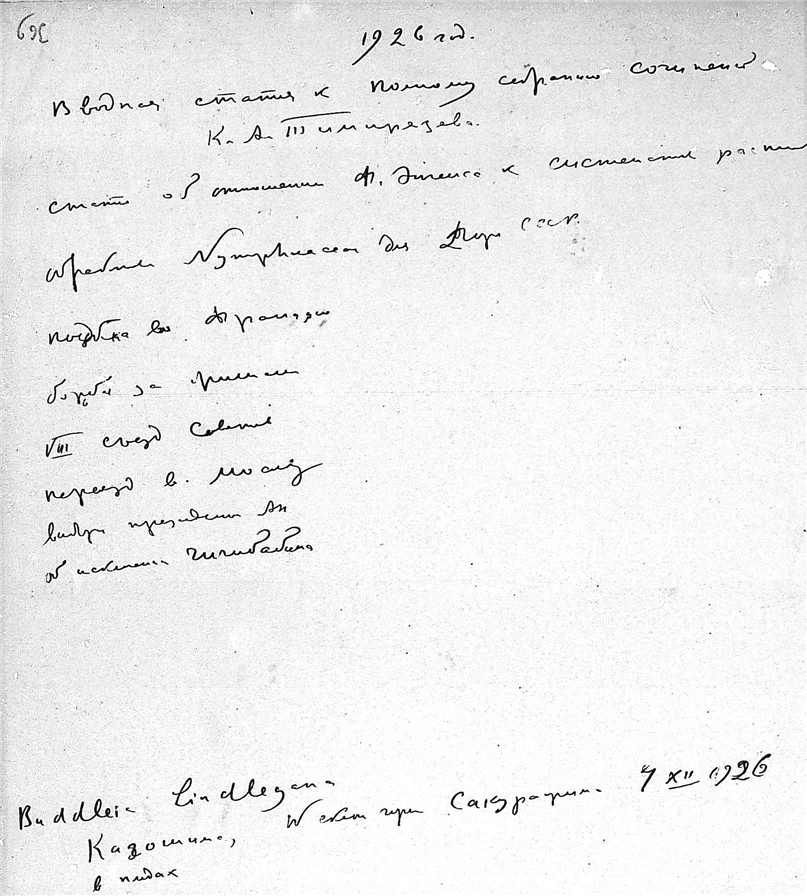 1926 год.
Вводная статья к полному собранию сочинений
К. А. Тимирязева.
статья об отношении Ф. Энгельса к систематике растений
обработка Nymphaeaceae для Флоры СССР.
поездка во Францию
борьба за
VIII съезд Советов
переезд в Москву
выборы президента АН
об исключении Чичибабина
Buddleia Lindleyana
Кадошима, гори Сакурафима. 4 XII 1926
в